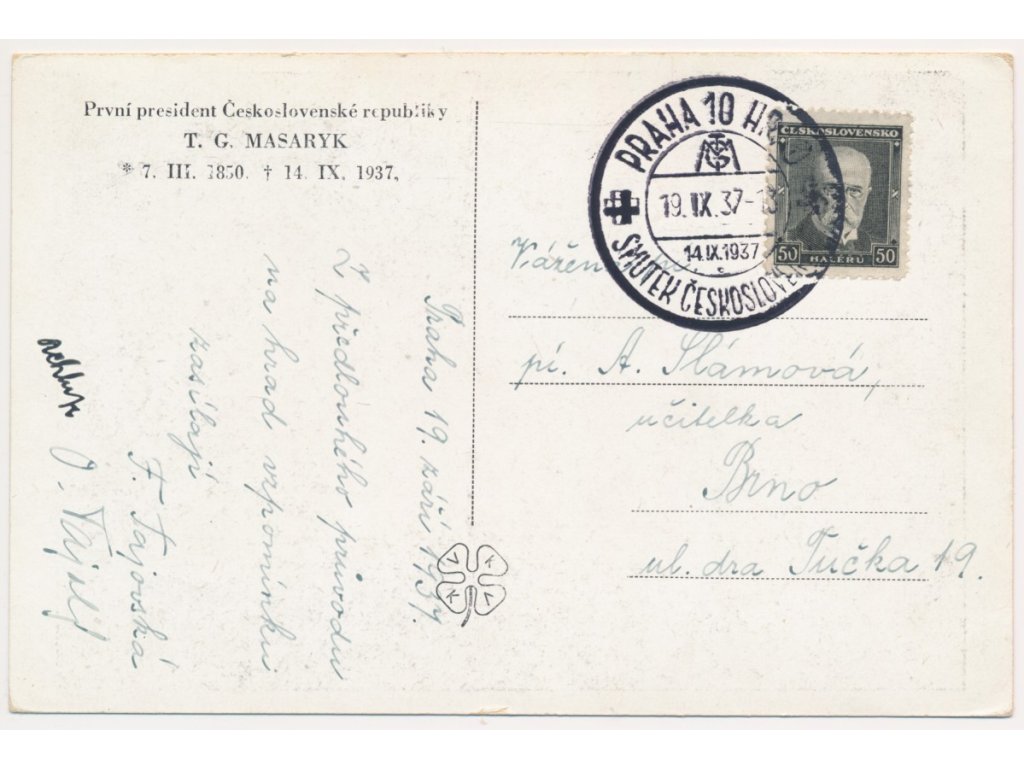 První president Československé republiky
T. G. MASARYK
* 7. III. 1850. † 14. IX. 1937,
Praha 19. září 1937.
Z předlouhého průvodu
na hrad vzpomínku
zasílají
F. Tajovská
PRAHA 10
TGM
19. IX. 37-
14.IX.1937
SMUTEK ČESKOSLOVEN
ČESKOSLOVENSKO
50 HALÉŘŮ 50
Vážená
pí. A. Slámová,
učitelka
Brno
ul. dra Tučka 19.